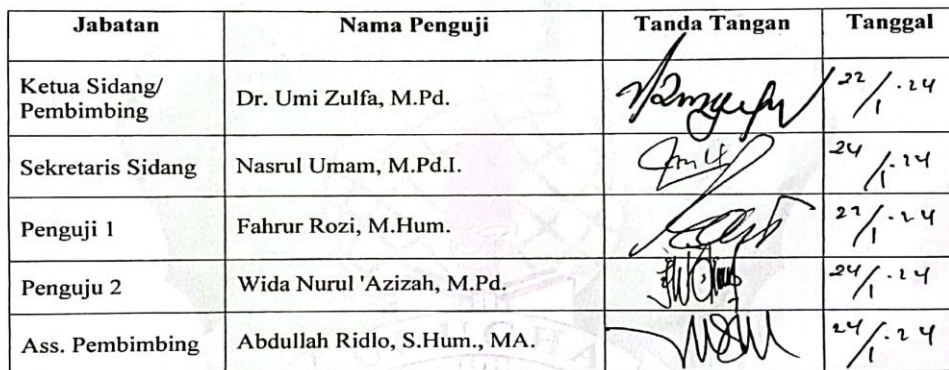 Jabatan Nama Penguji Tanda Tangan Tanggal
Ketua Sidang/
Pembimbing Dr. Umi Zulfa, M.Pd. 22/1.24
Sekretaris Sidang Nasrul Umam, M.Pd.I. 24/1.24
Penguji 1 Fahrur Rozi, M.Hum. 22/1.24
Penguju 2 Wida Nurul 'Azizah, M.Pd. 24/1.24
Ass. Pembimbing Abdullah Ridlo, S.Hum., MA. 24/1.24